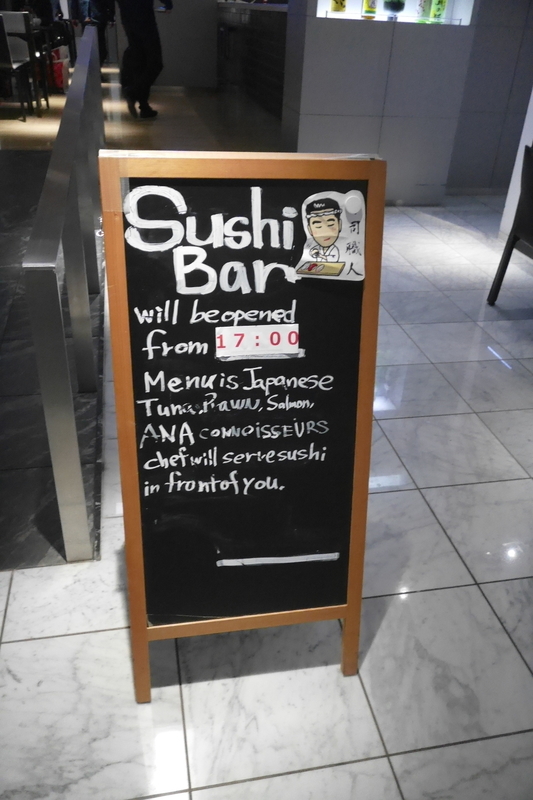 Sushi
Bar
司
職
人
will be opened
from 17:00
Menu is Japanese
Tuna, Prawn, Salmon,
ANA CONNOISSEURS
chef will serve sushi
in front of you.